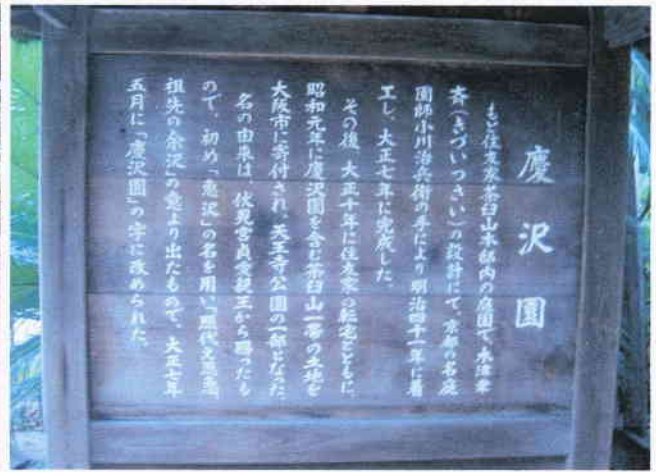 慶沢園
もと住友家茶臼山本邸内の庭園で、木津聿
斎(きづいつさい)の設計にて、京都の名庭
園師小川治兵衛の手により明治四十一年に着
工し、大正七年に完成した。
その後、大正十年に住友家の転宅とともに、
昭和元年に慶沢園を含む茶臼山一帯の土地を
大阪市に寄付され、天王寺公園の一部となった。
名の由来は、伏見宮貞愛親王から賜ったも
ので、初め「恵沢」の名を用い「照代之恩恵、
祖先の余沢」の意より出たもので、大正七年
五月に「慶沢園」の字に改められた。